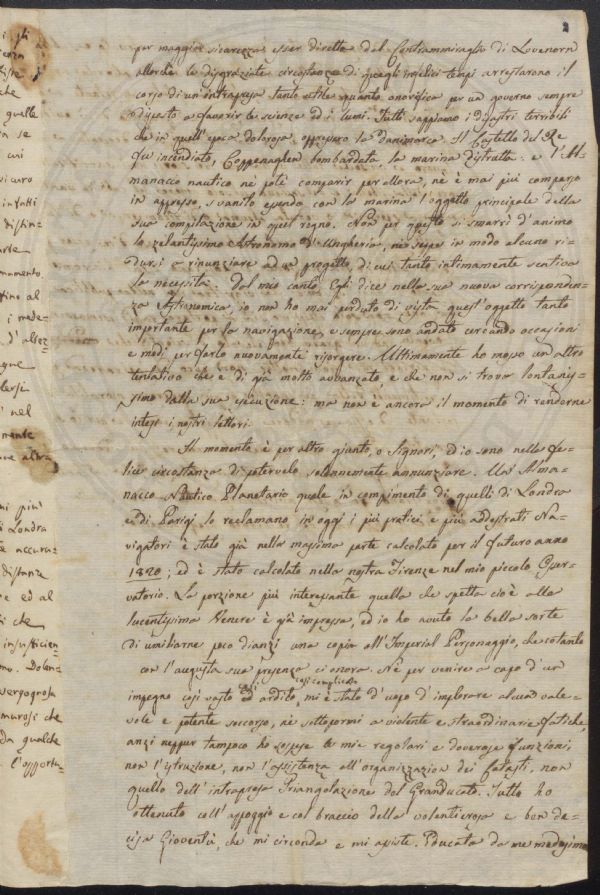 per maggior sicurezza esser diretta dal Contrammiraglio di Lovenorn
allorchè le disgraziate circostanze di quegli infelici tempi arrestarono il
corso di un'intrapresa tanto utile quanto onorifica per un governo sempre
disposto a favorir le scienze ed i lumi. Tutti sappiamo i disastri terribili
che in quell'epoca dolorosa oppressero la Danimarca. Il Castello del Re
fu incendiato, Coppenaghen bombardata la marina distrutta: e l'Al-
manacco nautico nè potè comparir per allora, nè è mai più comparso
in appresso, svanito essendo con la marina l'oggetto principale della
sua compilazione in quel regno. Non per questo si smarrì d'animo
lo zelantissimo Astronomo d'Ungheria, nè seppe in modo alcuno ri-
dursi a rinunziare ad un progetto, di cui tanto intimamente sentiva
la necessità. Dal mio canto, Egli dice nella sua nuova corrisponden-
za Astronomica, io non ho mai perduto di vista quest'oggetto tanto
importante per la navigazione, e sempre sono andato cercando occasioni
e modi per farlo nuovamente risorgere. Ultimamente ho mosso un altro
tentativo che è di già molto avvanzato, e che non si trova lontanis-
simo dalla sua esecuzione: ma non è ancora il momento di renderne
intesi i nostri lettori.
Il momento è per altro giunto, o Signori, ed io sono nella fe-
lice circostanza di potervelo solennemente annunziare. Un Alma-
nacco Nautico Planetario quale in compimento di quelli di Londra
e di Parigi lo reclamano in oggi i più pratici e più addestrati Na-
vigatori è stato già nella massima parte calcolato per il futuro anno
1820; ed è stato calcolato nella nostra Firenze nel mio piccolo Osser-
vatorio. La porzione più interessante quella che spetta cioè alla
lucentissima Venere è già impressa, ed io ho avuto la bella sorte
di umiliarne poco dianzi una copia all'Imperial Personaggio, che cotanto
con l'augusta sua presenza ci onora. Nè per venire a capo d'un
così complicato
impegno così vasto ed ardito, mi è stato d'uopo d'implorare alcun vale-
vole e potente soccorso, nè sottopormi a violente e straordinarie fatiche,
anzi neppur tampoco ho sospese le mie regolari e doverose funzioni,
non l'istruzione, non l'assistenza all'organizzazion dei Catasti, non
quello dell'intrapresa Triangolazione del Granducato. Tutto ho
ottenuto coll'appoggio e col braccio della volenterosa e ben de-
cisa Gioventù, che mi circonda e mi assiste. Educata da me medesimo